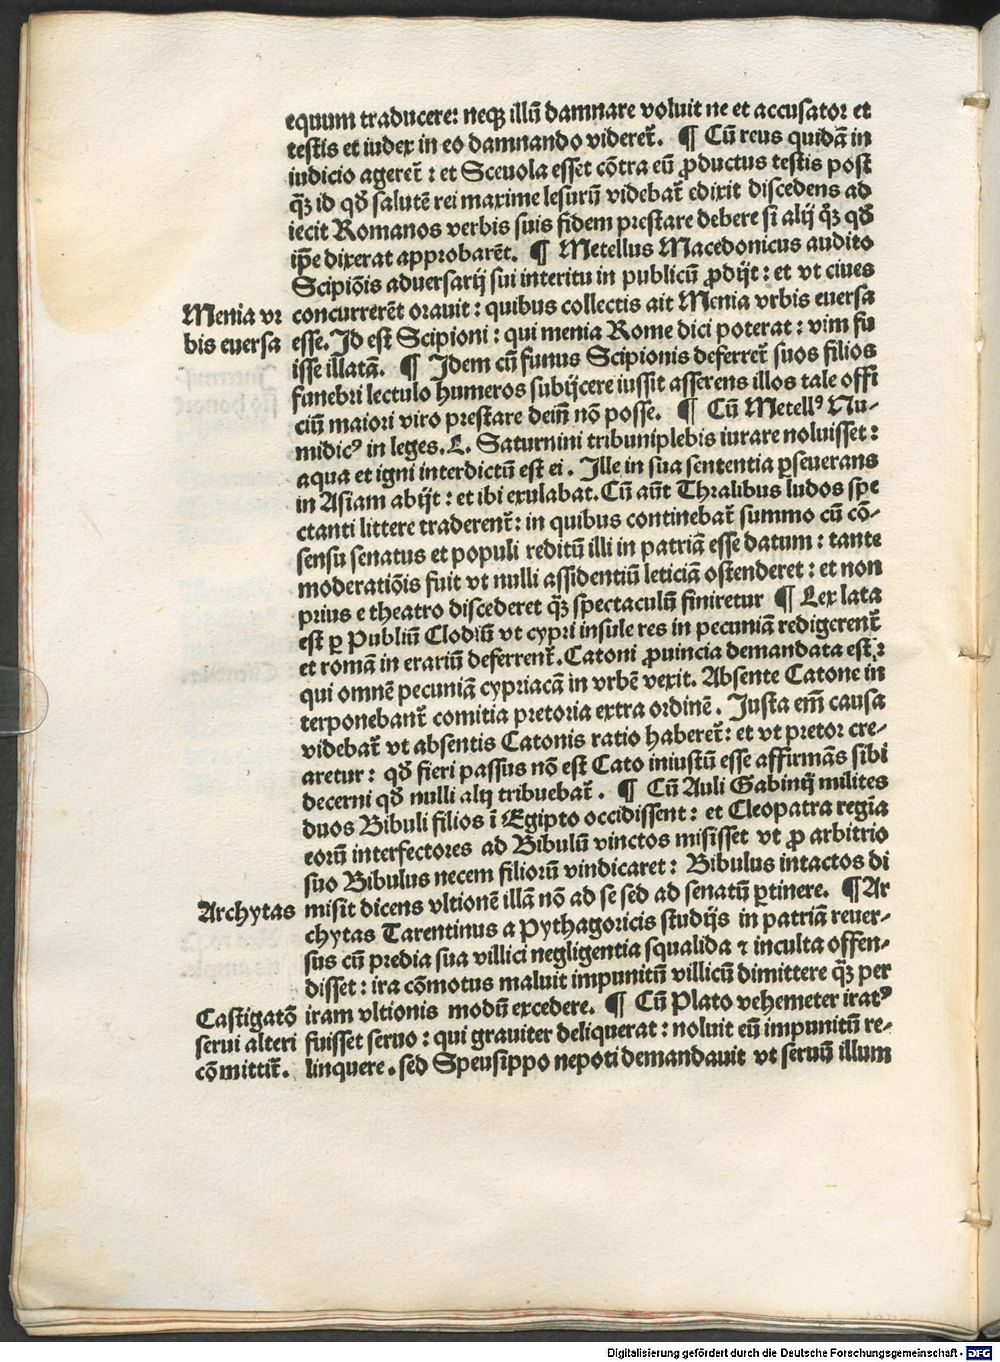 equum traducere: neqꝫ illū damnare voluit ne et accusator et
testis et iudex in eo damnando videret᷑. ¶ Cū reus quidā in
iudicio ageret᷑ : et Sceuola esset cōtra eū ꝓductus testis post
q̄ꝫ id qd̄ salutē rei maxime lesurū videbat᷑ edixit discedens ad
iecit Romanos verbis suis fidem prestare debere si alij q̄ꝫ qd̄
ip̄e dixerat approbarēt. ¶ Metellus Macedonicus audito
Scipiōis aduersarij sui interitu in publicū ꝓdijt : et vt ciues
Menia vr
bis euersa
concurrerēt orauit : quibus collectis ait Menia vrbis euersa
esse. Id est Scipioni : qui menia Rome dici poterat : vim fu
isse illatā. ¶ Idem cū funus Scipionis deferret᷑ suos filios
funebri lectulo humeros subijcere iussit asserens illos tale offi
ciū maiori viro prestare dein̄ nō posse. ¶ Cū Metellꝰ Nu-
midicꝰ in leges. L. Saturnini tribuniplebis iurare noluisset :
aqua et igni interdictū est ei. Ille in sua sententia ꝑseuerans
in Asiam abijt : et ibi exulabat. Cū aūt Thralibus ludos spe
ctanti littere traderent᷑: in quibus continebat᷑ summo cū cō-
sensu senatus et populi reditū illi in patriā esse datum : tante
moderatiōis fuit vt nulli assidentiū leticiā ostenderet : et non
prius e theatro discederet q̄ꝫ spectaculū finiretur ¶ Lex lata
est ꝑ Publiū Clodiū vt cypri insule res in pecuniā redigerent᷑
et romā in erariū deferrent᷑. Catoni ꝓuincia demandata est :
qui omnē pecuniā cypriacā in vrbē vexit. Absente Catone in
terponebant᷑ comitia pretoria extra ordinē. Iusta em̄ causa
videbat᷑ vt absentis Catonis ratio haberet᷑: et vt pretor cre-
aretur : qd̄ fieri passus nō est Cato iniustū esse affirmās sibi
decerni qd̄ nulli alij tribuebat᷑. ¶ Cū Auli Gabinij milites
duos Bibuli filios ī Egipto occidissent : et Cleopatra regīa
eorū interfectores ad Bibulū vinctos misisset vt ꝓ arbitrio
suo Bibulus necem filiorū vindicaret : Bibulus intactos di
misit dicens vltionē illā nō ad se sed ad senatū ꝑtinere. ¶ Ar
Archytas
chytas Tarentinus a Pythagoricis studijs in patriā reuer-
sus cū predia sua villici negligentia squalida ⁊ inculta offen-
disset : ira cōmotus maluit impunitū villicū dimittere q̄ꝫ per
iram vltionis modū excedere. ¶ Cū Plato vehemeter iratꝰ
Castigatō
serui alteri
cōmittit᷑.
fuisset seruo : qui grauiter deliquerat : noluit eū impunitū re-
linquere. sed Speusippo nepoti demandauit vt seruū illum
Digitalisierung gefördert durch die Deutsche Forschungsgemeinschaft - DFG